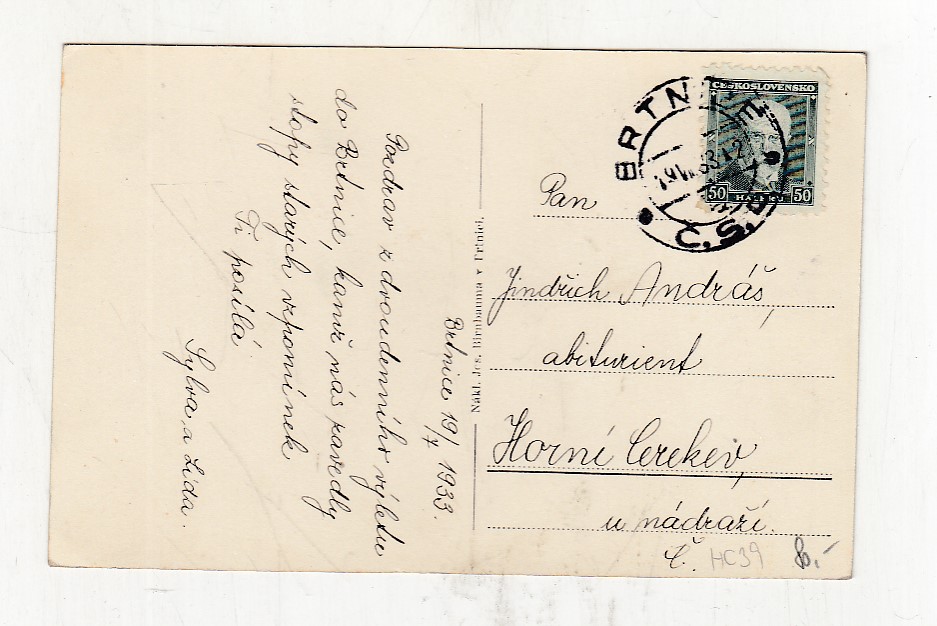 Brtnice 19/7 1933.
Pozdrav z dvoudenního výletu
do Brtnice, kamž nás zavedly
stopy starých vzpomínek
Ti posílá
Sylva a Lída.
ČESKOSLOVENSKO
50 HALÉŘŮ 50
BRTNICE
Č.S.R.
Pan
Jindřich Andráš,
abiturient
Horní Cerekev,
u nádraží.
Č. HC39 8.-